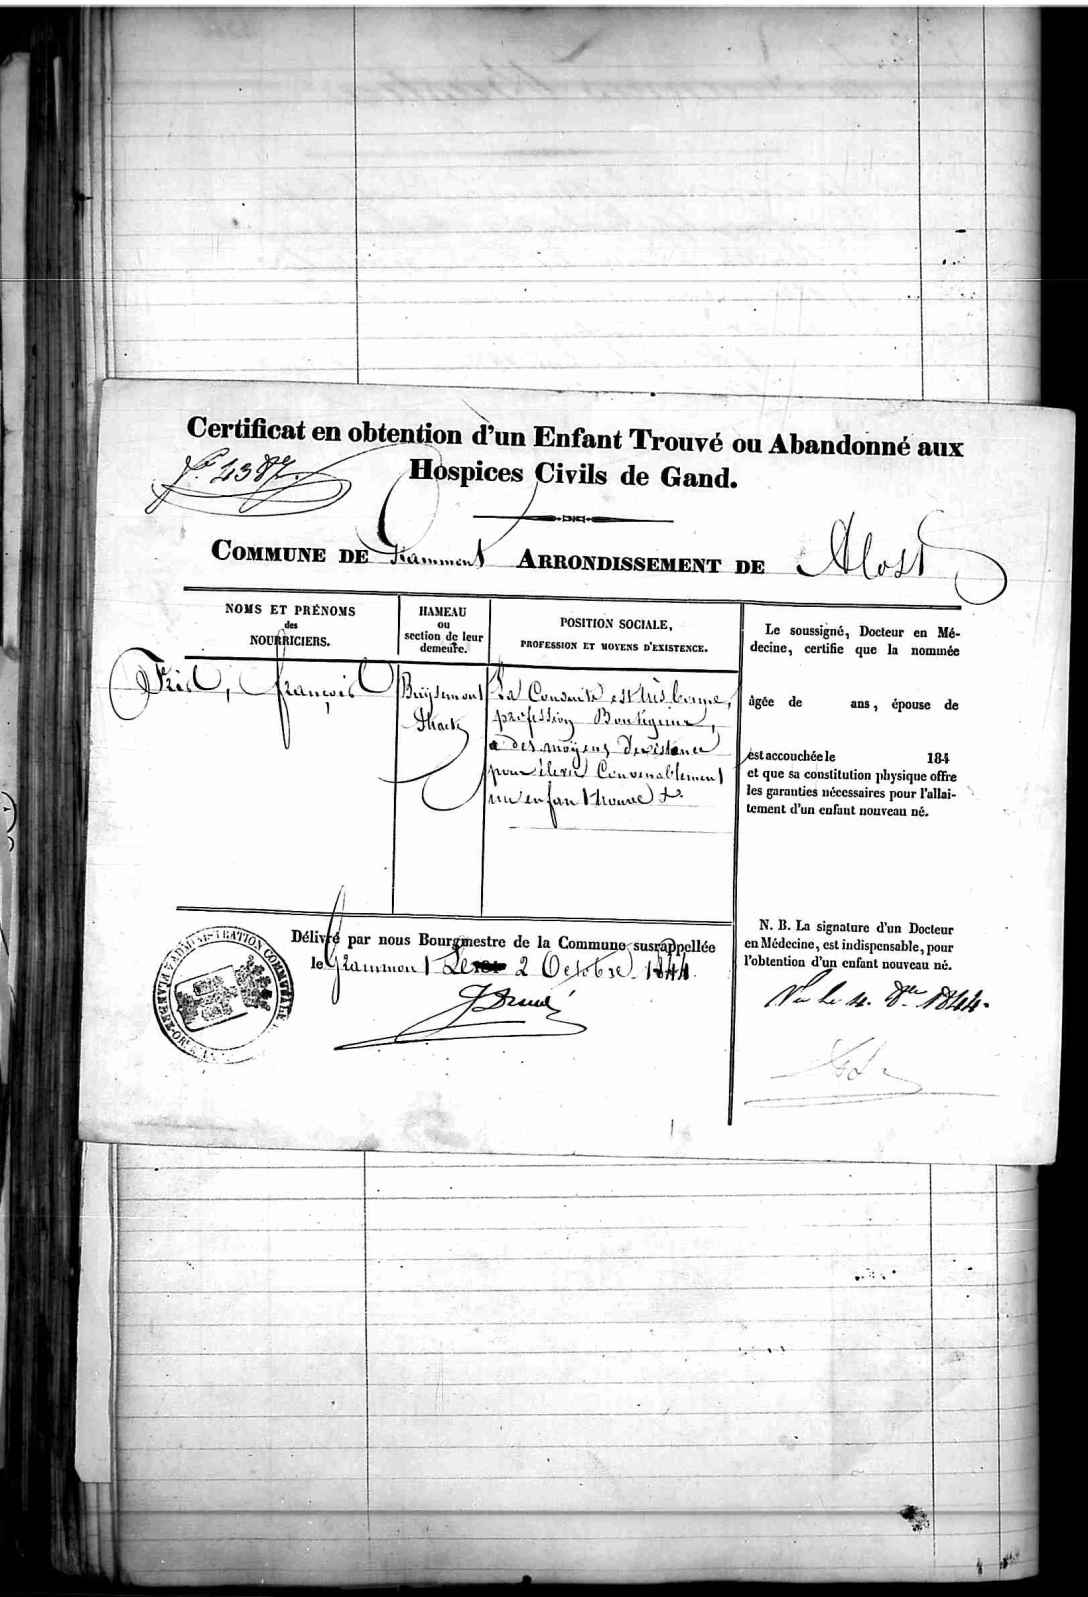 Certificat en obtention d'un Enfant Trouvé ou Abandonné aux
Hospices Civils de Gand.
N.º 4387.
COMMUNE DE Grammont ARRONDISSEMENT DE Alost
NOMS ET PRÉNOMS
des
NOURRICIERS.
HAMEAU
ou
section de leur
demeure.
POSITION SOCIALE,
PROFESSION ET MOYENS D'EXISTENCE.
François
Buysemont
Straet
La Conduite est très bonne,
profession Boutiquier,
a des moyens d'existence
pour élever Convenablement
un enfant trouvé
Le soussigné, Docteur en Mé-
decine, certifie que la nommée
âgée de ans, épouse de
est accouchée le 184
et que sa constitution physique offre
les garanties nécessaires pour l'allai-
tement d'un enfant nouveau né.
Délivré par nous Bourgmestre de la Commune susrappellée
le Grammont Le 2 Octobre 1844.
N. B. La signature d'un Docteur
en Médecine, est indispensable, pour
l'obtention d'un enfant nouveau né.
Vu le 4. 8bre 1844.
ADMINISTRATION COMMUNALE